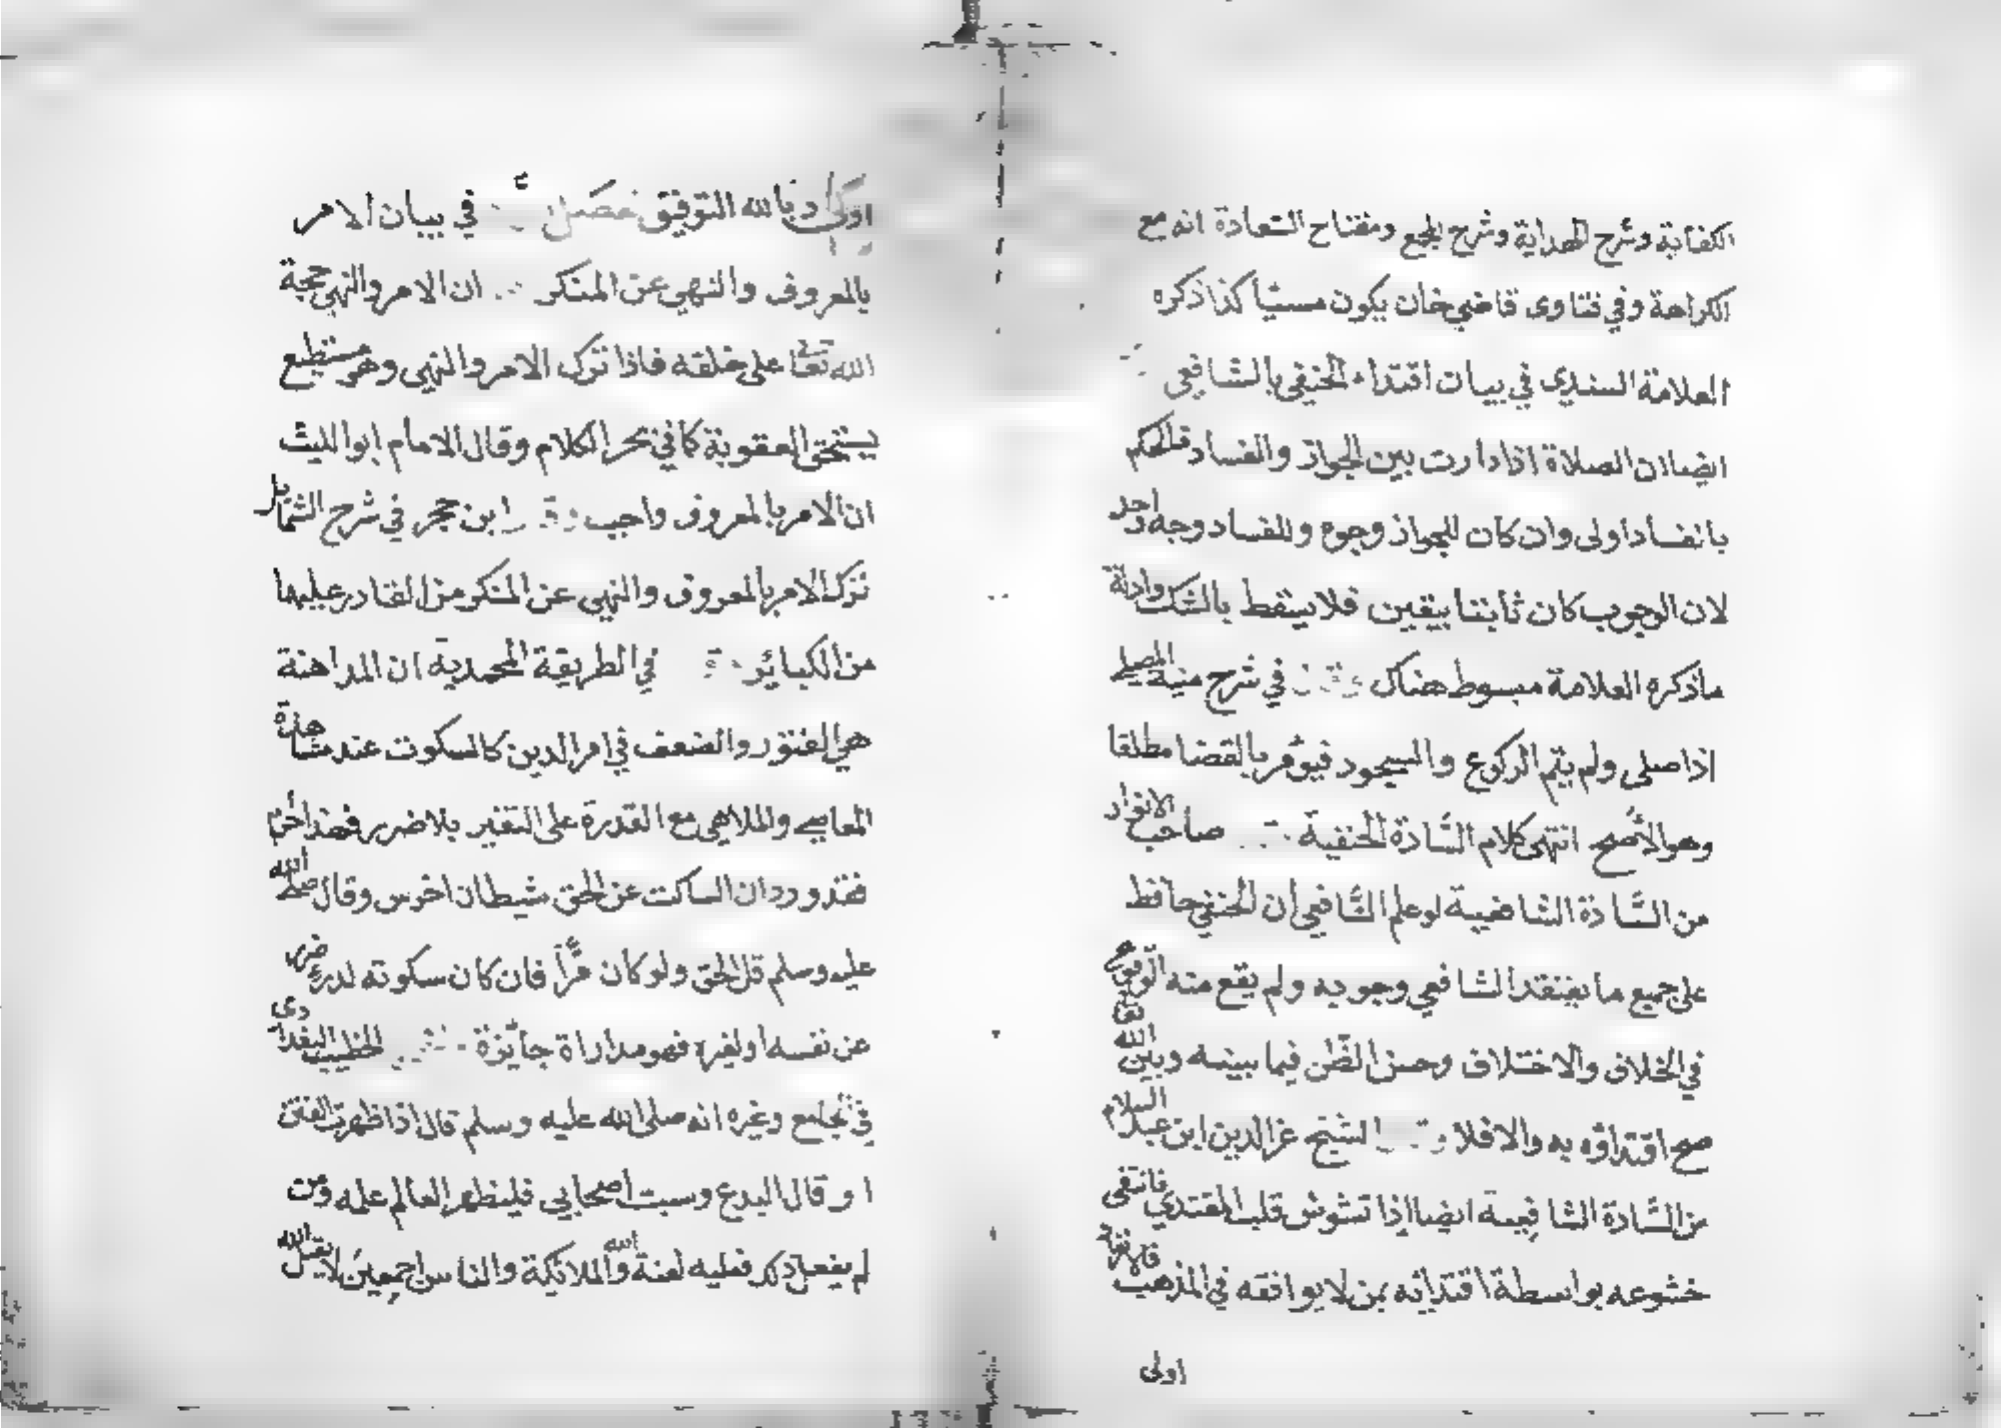 الكفاية وشرح الهداية وشرح المجمع ومفتاح السّعادة انه مع
الكراهة وفي فتاوى قاضي خان يكون مسئيا كذا ذكره
العلامة السندي في بيان اقتداء الحنفي بالشافعي
ايضا ان الصلاة اذا دارت بين الجواز والفساد فالحكم
بالفساد اولى وان كان للجواز وجوه وللفساد وجه واحد
لان الوجوب كان ثابتا بيقين فلا يسقط بالشك وادلة
ما ذكره العلامة مبسوط هناك وقال في شرح منية المصلي
اذا صلى ولم يتم الركوع والسجود فيؤمر بالقضا مطلقا
وهو الأصح انتهى كلام السّادة الحنفية صاحب الانوار
من السّادة الشافعية لو علم الشّافعي أن الحنفي حافظ
على جميع ما يعتقد الشافعي وجوبه ولم يقع منه الوقوع
في الخلاف والاختلاف وحسن الظّن فيما بينه وبين الله تعالى
صح اقتداؤه به والا فلا الشيخ عز الدين ابن عبد السلام
من السّادة الشافعية ايضا إذا تشوش قلب المقتدي فانتفى
خشوعه بواسطة اقتدائه بمن لا يوافقه في المذهب
اولى
اولى وبالله التوفيق فصل في بيان الامر
بالمعروف والنهي عن المنكر ان الامر والنهي حجة
الله تعالى على خلقه فاذا ترك الامر والنهي وهو مستطيع
يستحق العقوبة كما في بحر الكلام وقال الامام ابو الليث
ان الامر بالمعروف واجب وقال ابن حجر في شرح الشمايل
ترك الامر بالمعروف والنهي عن المنكر من القادر عليها
من الكبائر في الطريقة المحمدية ان المداهنة
هي الفتور والضعف في امر الدين كالسكوت عند مشاهدة
المعاصي والملاهي مع القدرة على التغير بلا ضرر فهذا أخرس
فقد ورد ان الساكت عن الحق شيطان اخرس وقال صلى الله
عليه وسلم قل الحق ولو كان مرّا فان كان سكوته لدرء ضرر
عن نفسه او لغيره فهو مداراة جائزة الخطيب البغدادى
في الجامع وغيره انه صلى الله عليه وسلم قال اذا ظهرت الفتن
او قال البدع وسبت اصحابي فليظهر العالم علمه ومن
لم يفعل ذلك فعليه لعنة الله والملائكة والناس اجمعين لا يقبل الله